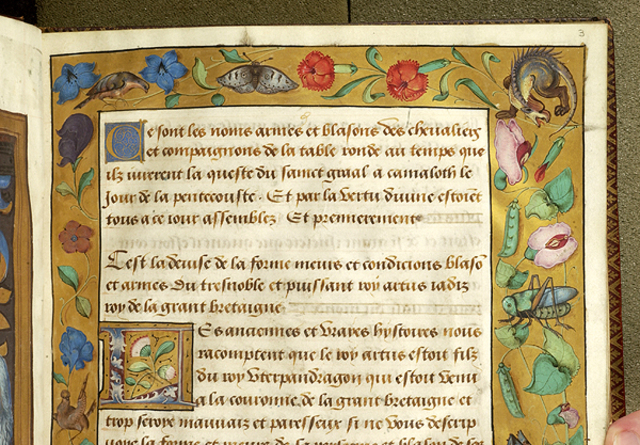 3
Ce sont les noms armes et blasons des chevaliers
et compaignons de la table ronde au temps que
ilz iurerent la queste du sainct graal a camaloth le
Jour de la pentecouste. Et par la vertu divine estoiet
tous a ce iour assemblez Et premierement
C'est la devise de la forme meurs et condicions blaso
et armes Du tresnoble et puissant roy artus iadiz
roy de la grant bretaigne
Es anciennes et vrayes hystoires nous
racomptent que le roy artus estoit filz
du roy Vterpandragon qui estoit venu
a la couronne de la grant bretaigne et
trop seroye mauvaiz et paresseux si ne vous descrip
voye la forme et